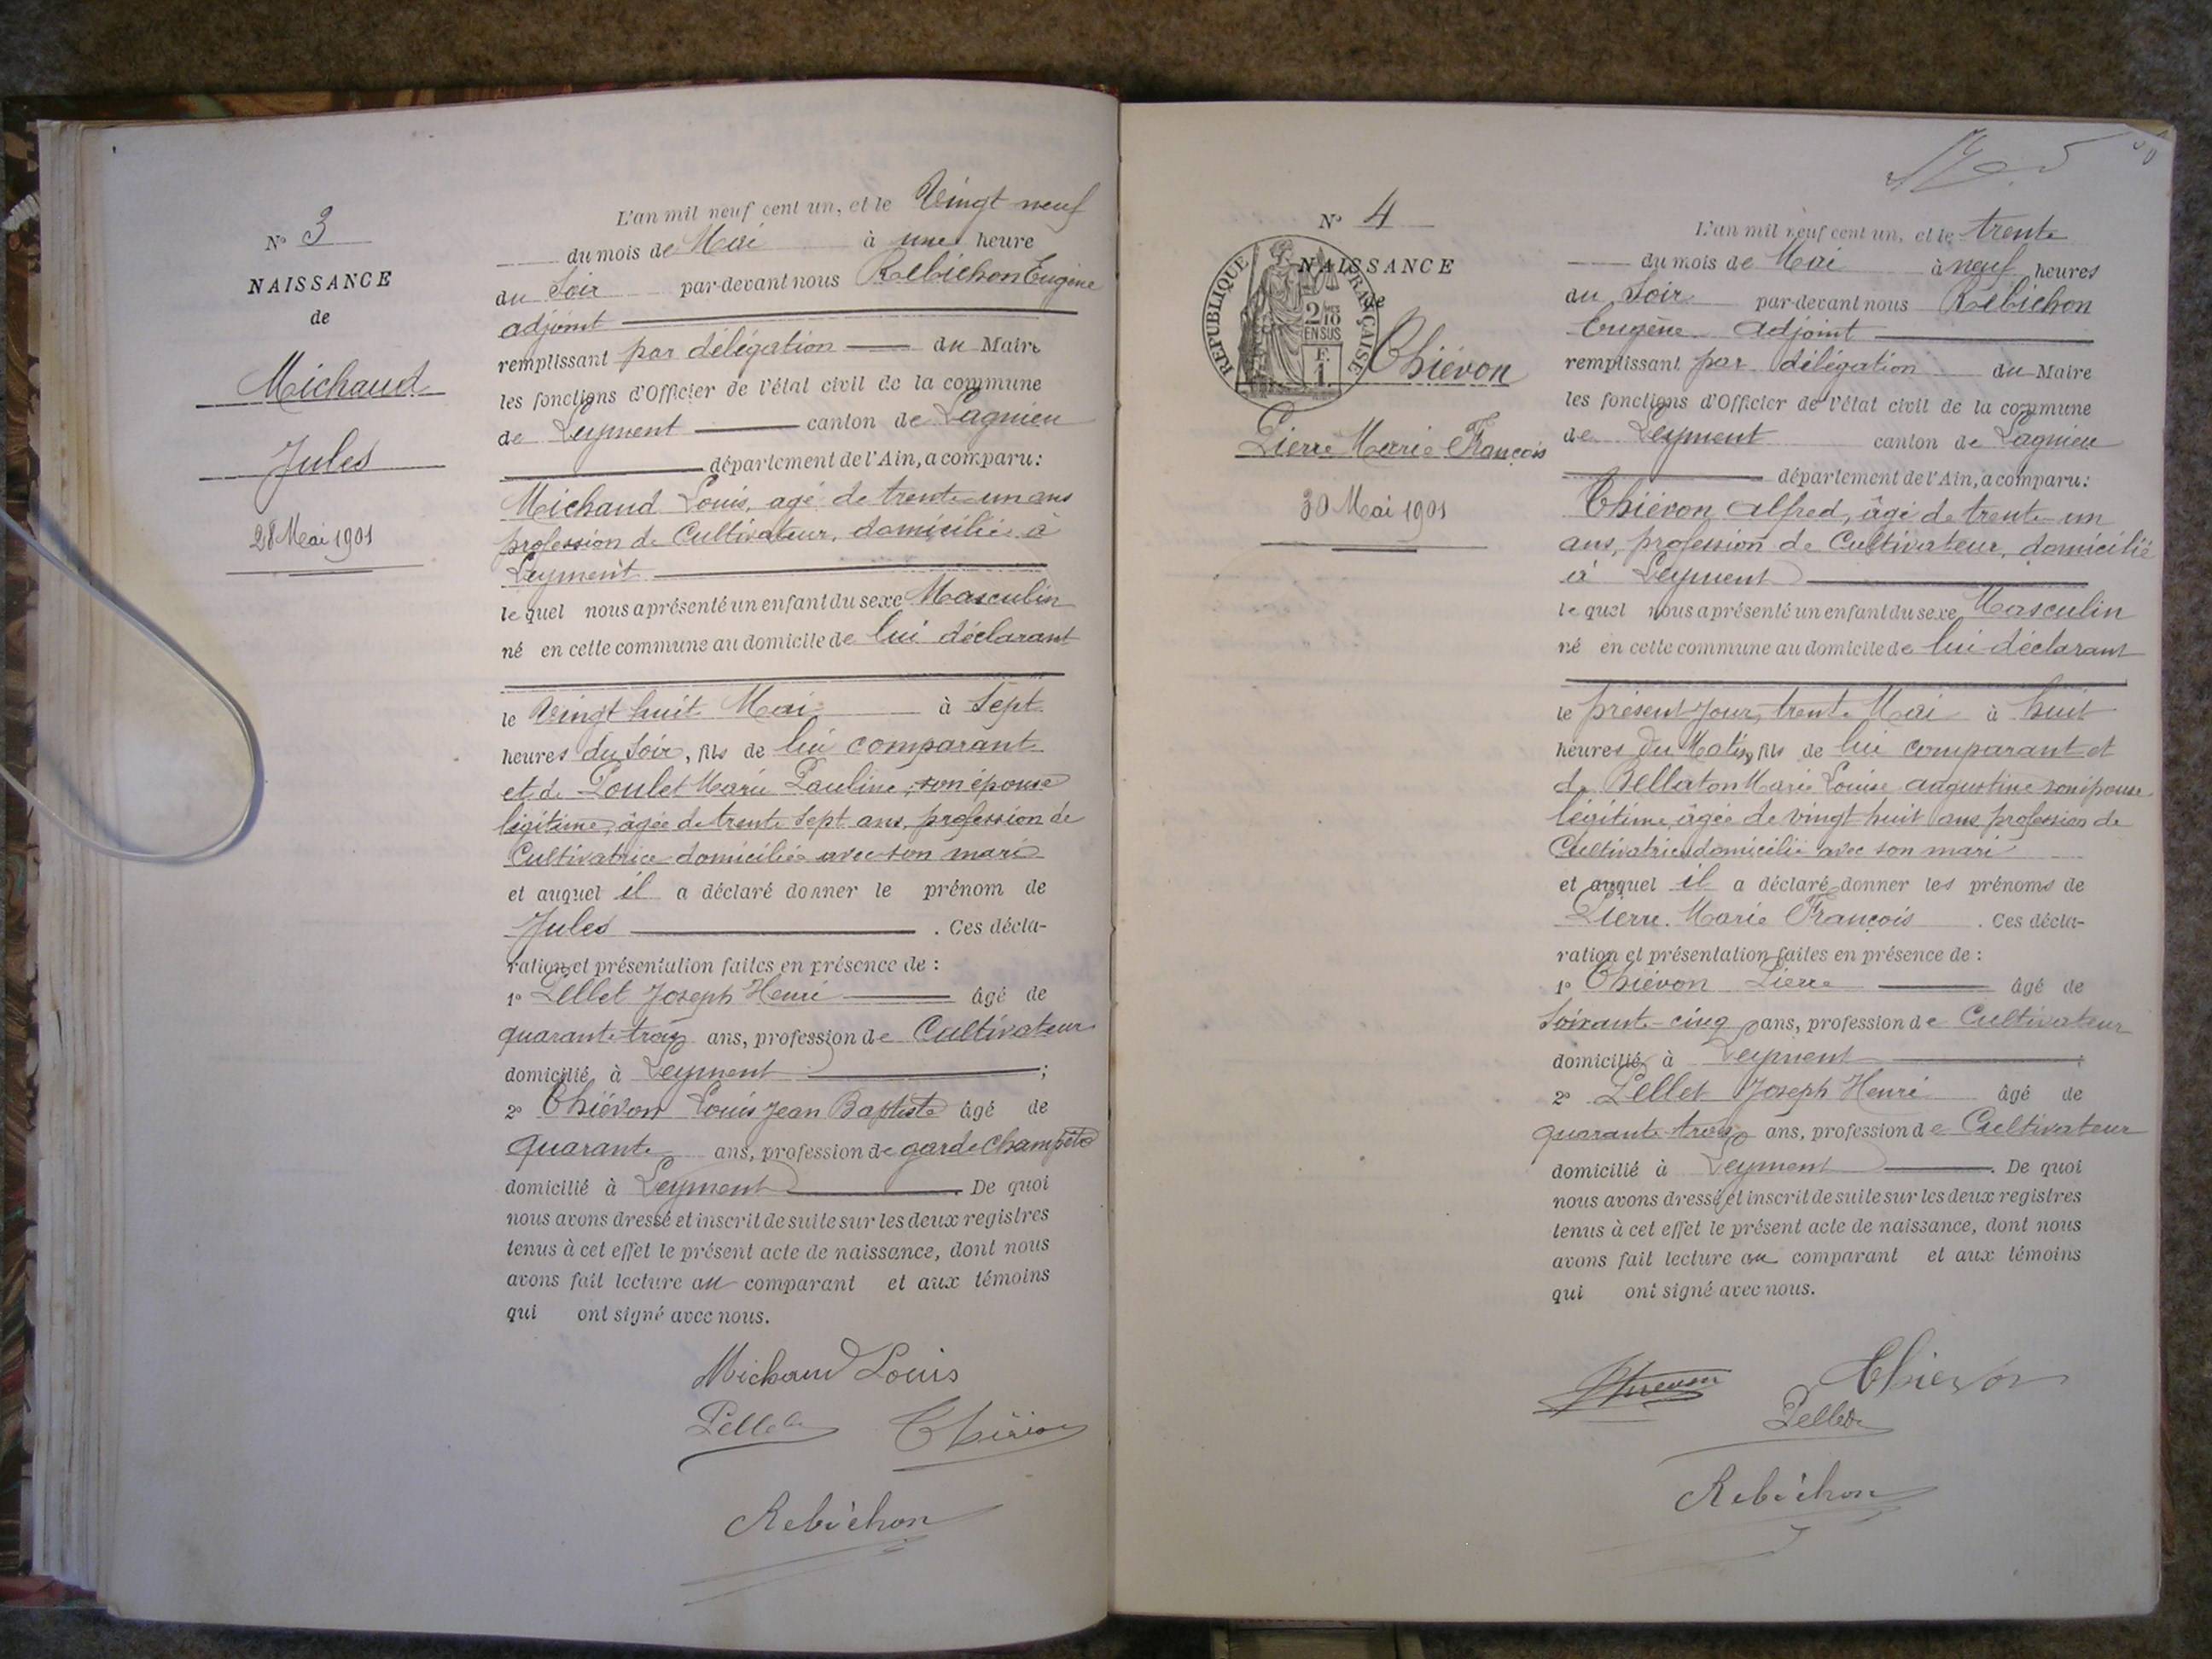 N° 3
NAISSANCE
de
Michaud
Jules
28 Mai 1901
L'an mil neuf cent un, et le Vingt neuf
du mois de Mai à une heure
du Soir par-devant nous Rebichon Eugène
adjoint
remplissant par délégation du Maire
les fonctions d'Officier de l'état civil de la commune
de Leyment canton de Lagnieu
département de l'Ain, a comparu :
Michaud Louis, agé de trente un ans
profession de Cultivateur, domiciliée à
Leyment
lequel nous a présenté un enfant du sexe Masculin
né en cette commune au domicile de lui déclarant
le Vingt huit Mai à Sept
heures du Soir, fils de lui comparant
et de Poulet Marie Pauline, son épouse
légitime, âgée de trente sept ans, profession de
Cultivatrice domiciliée avec son mari
et auquel il a déclaré donner le prénom de
Jules . Ces décla-
ration et présentation faites en présence de :
1° Pellet Joseph Henri âgé de
quarante trois ans, profession de Cultivateur
domicilié à Leyment ;
2° Thiévon Louis Jean Baptiste âgé de
quarante ans, profession de garde Champête
domicilié à Leyment . De quoi
nous avons dressé et inscrit de suite sur les deux registres
tenus à cet effet le présent acte de naissance, dont nous
avons fait lecture au comparant et aux témoins
qui ont signé avec nous.
Michaud Louis
Pellet Thiévon
Rebichon
N° 4
NAISSANCE
de
RÉPUBLIQUE FRANÇAISE
2/10
EN SUS
F.
1
Thiévon
Pierre Marie François
30 Mai 1901
L'an mil neuf cent un, et le trente
du mois de Mai à neuf heures
du Soir par-devant nous Rebichon
Eugène adjoint
remplissant par délégation du Maire
les fonctions d'Officier de l'état civil de la commune
de Leyment canton de Lagnieu
département de l'Ain, a comparu :
Thiévon Alfred, âgé de trente un
ans, profession de Cultivateur, domicilié
à Leyment
lequel nous a présenté un enfant du sexe Masculin
né en cette commune au domicile de lui déclarant
le présent jour, trente Mai à huit
heures du Matin, fils de lui comparant et
de Bellaton Marie Louise augustine son épouse
légitime, âgée de vingt huit ans profession de
Cultivatrice domicilié avec son mari
et auquel il a déclaré donner les prénoms de
Pierre Marie François . Ces décla-
ration et présentation faites en présence de :
1° Thiévon Pierre âgé de
Soixante-cinq ans, profession de Cultivateur
domicilié à Leyment ;
2° Pellet Joseph Henri âgé de
quarante trois ans, profession de Cultivateur
domicilié à Leyment . De quoi
nous avons dressé et inscrit de suite sur les deux registres
tenus à cet effet le présent acte de naissance, dont nous
avons fait lecture au comparant et aux témoins
qui ont signé avec nous.
Thiévon Thievon
Pellet
Rebichon